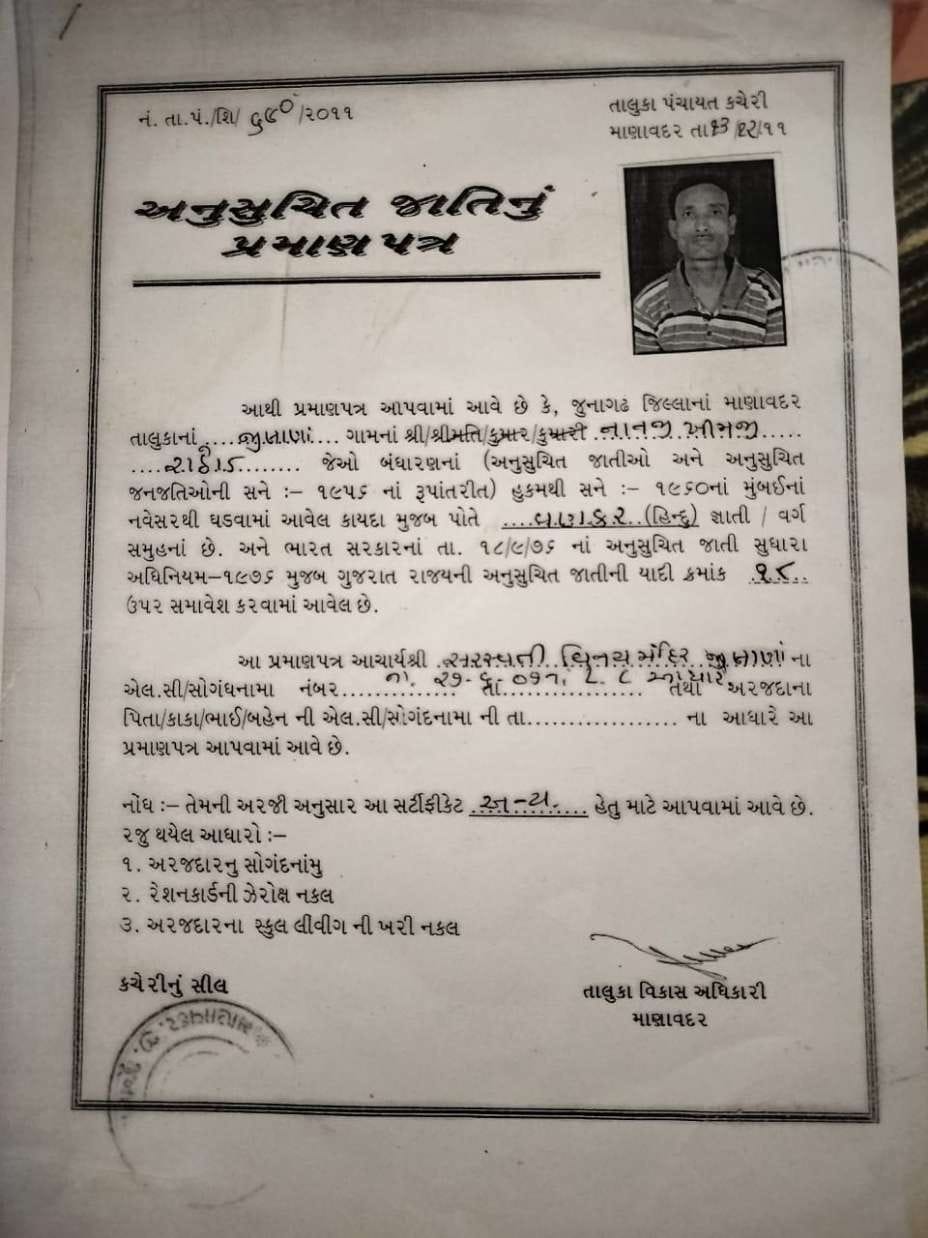 નં. તા.પં./શિ/ ૬૯૦ /૨૦૧૧
તાલુકા પંચાયત કચેરી
માણાવદર તા
અનુસુચિત જાતિનું
પ્રમાણ પત્ર
આથી પ્રમાણપત્ર આપવામાં આવે છે કે, જુનાગઢ જિલ્લાનાં માણાવદર
તાલુકાનાં ....જીલાણાં... ગામનાં શ્રી/શ્રીમતિ/કુમાર/કુમારી ..નાનજી ખીમજી.....
....રાઠોડ........ જેઓ બંધારણનાં (અનુસુચિત જાતીઓ અને અનુસુચિત
જનજતિઓની સને :– ૧૯૫૬ નાં રૂપાંતરીત) હુકમથી સને :– ૧૯૬૦નાં મુંબઈનાં
નવેસરથી ઘડવામાં આવેલ કાયદા મુજબ પોતે ....વણકર (હિન્દુ) જ્ઞાતી / વર્ગ
સમુહનાં છે. અને ભારત સરકારનાં તા. ૧૮/૯/૭૬ નાં અનુસુચિત જાતી સુધારા
અધિનિયમ–૧૯૭૬ મુજબ ગુજરાત રાજયની અનુસુચિત જાતીની યાદી ક્રમાંક
ઉપર સમાવેશ કરવામાં આવેલ છે.
આ પ્રમાણપત્ર આચાર્યશ્રી સરસ્વતી વિનય મંદિર જીલાણાં ના
એલ.સી/સોગંધનામા નંબર............. તા................. તથા અરજદાના
પિતા/કાકા/ભાઈ/બહેન ની એલ.સી/સોગંદનામા ની તા.................. ના આધારે આ
પ્રમાણપત્ર આપવામાં આવે છે.
નોંધ :– તેમની અરજી અનુસાર આ સર્ટીફીકેટ અન્ય હેતુ માટે આપવામાં આવે છે.
રજુ થયેલ આધારો :–
૧. અરજદારનુ સોગંદનાંમુ
૨. રેશનકાર્ડની ઝેરોક્ષ નકલ
૩. અરજદારના સ્કુલ લીવીગ ની ખરી નકલ
કચેરીનું સીલ
તાલુકા વિકાસ અધિકારી
માણાવદર